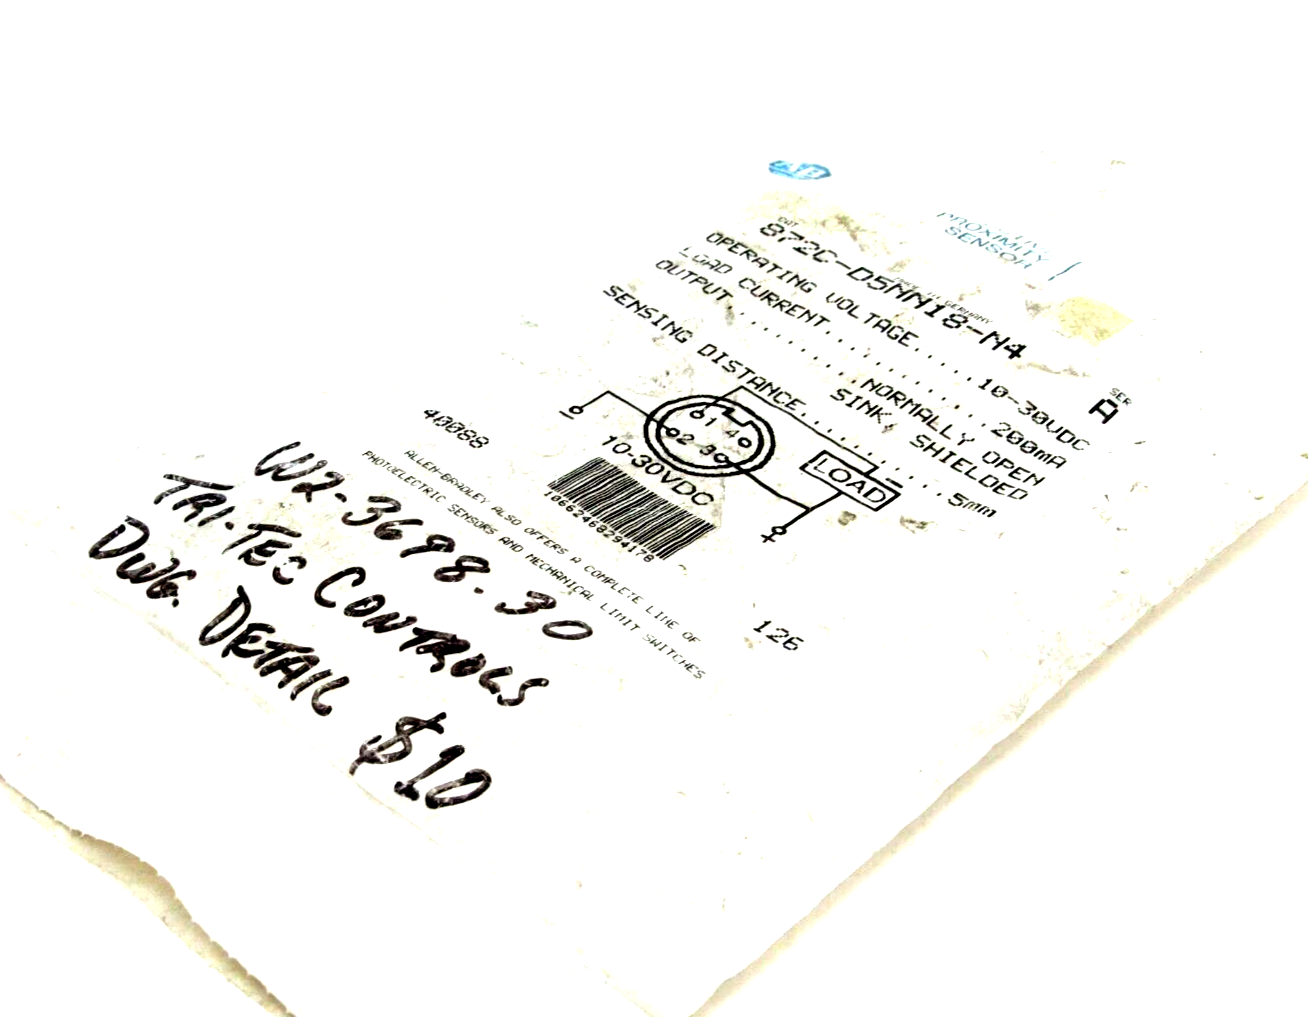 AB
PROXIMITY
SENSOR
CAT
872C-D5NN18-N4
MADE IN GERMANY
SER
A
OPERATING VOLTAGE.....10-30VDC
LOAD CURRENT..............200mA
OUTPUT............NORMALLY OPEN
SINK, SHIELDED
SENSING DISTANCE.........5mm
1 4
2 3
LOAD
-
+
10-30VDC
10662468294178
40088
126
ALLEN-BRADLEY ALSO OFFERS A COMPLETE LINE OF
PHOTOELECTRIC SENSORS AND MECHANICAL LIMIT SWITCHES
W2-3698.30
TRI-TEC CONTROLS
DWG. DETAIL $10